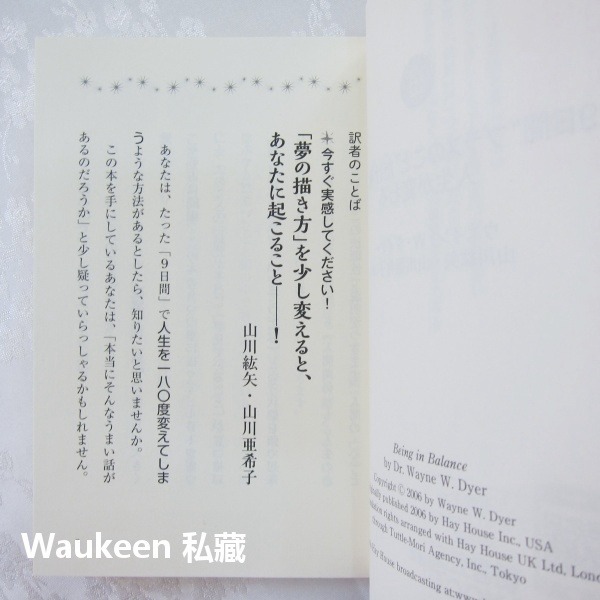 訳者のことば
今すぐ実感してください!
「夢の描き方」を少し変えると、
あなたに起こること——!
山川紘矢・山川亜希子
あなたは、たった「9日間」で人生を一八〇度変えてしま
うような方法があるとしたら、知りたいと思いませんか。
この本を手にしているあなたは、「本当にそんなうまい話が
あるのだろうか」と少し疑っていらっしゃるかもしれません。
Being in Balance
by Dr. Wayne W. Dyer
Copyright © 2006 by Wayne W. Dyer
published 2006 by Hay House Inc., USA
rights arranged with Hay House UK Ltd, Lond
through Tuttle-Mori Agency, Inc., Tokyo
House broadcasting at:www
Waukeen 私藏